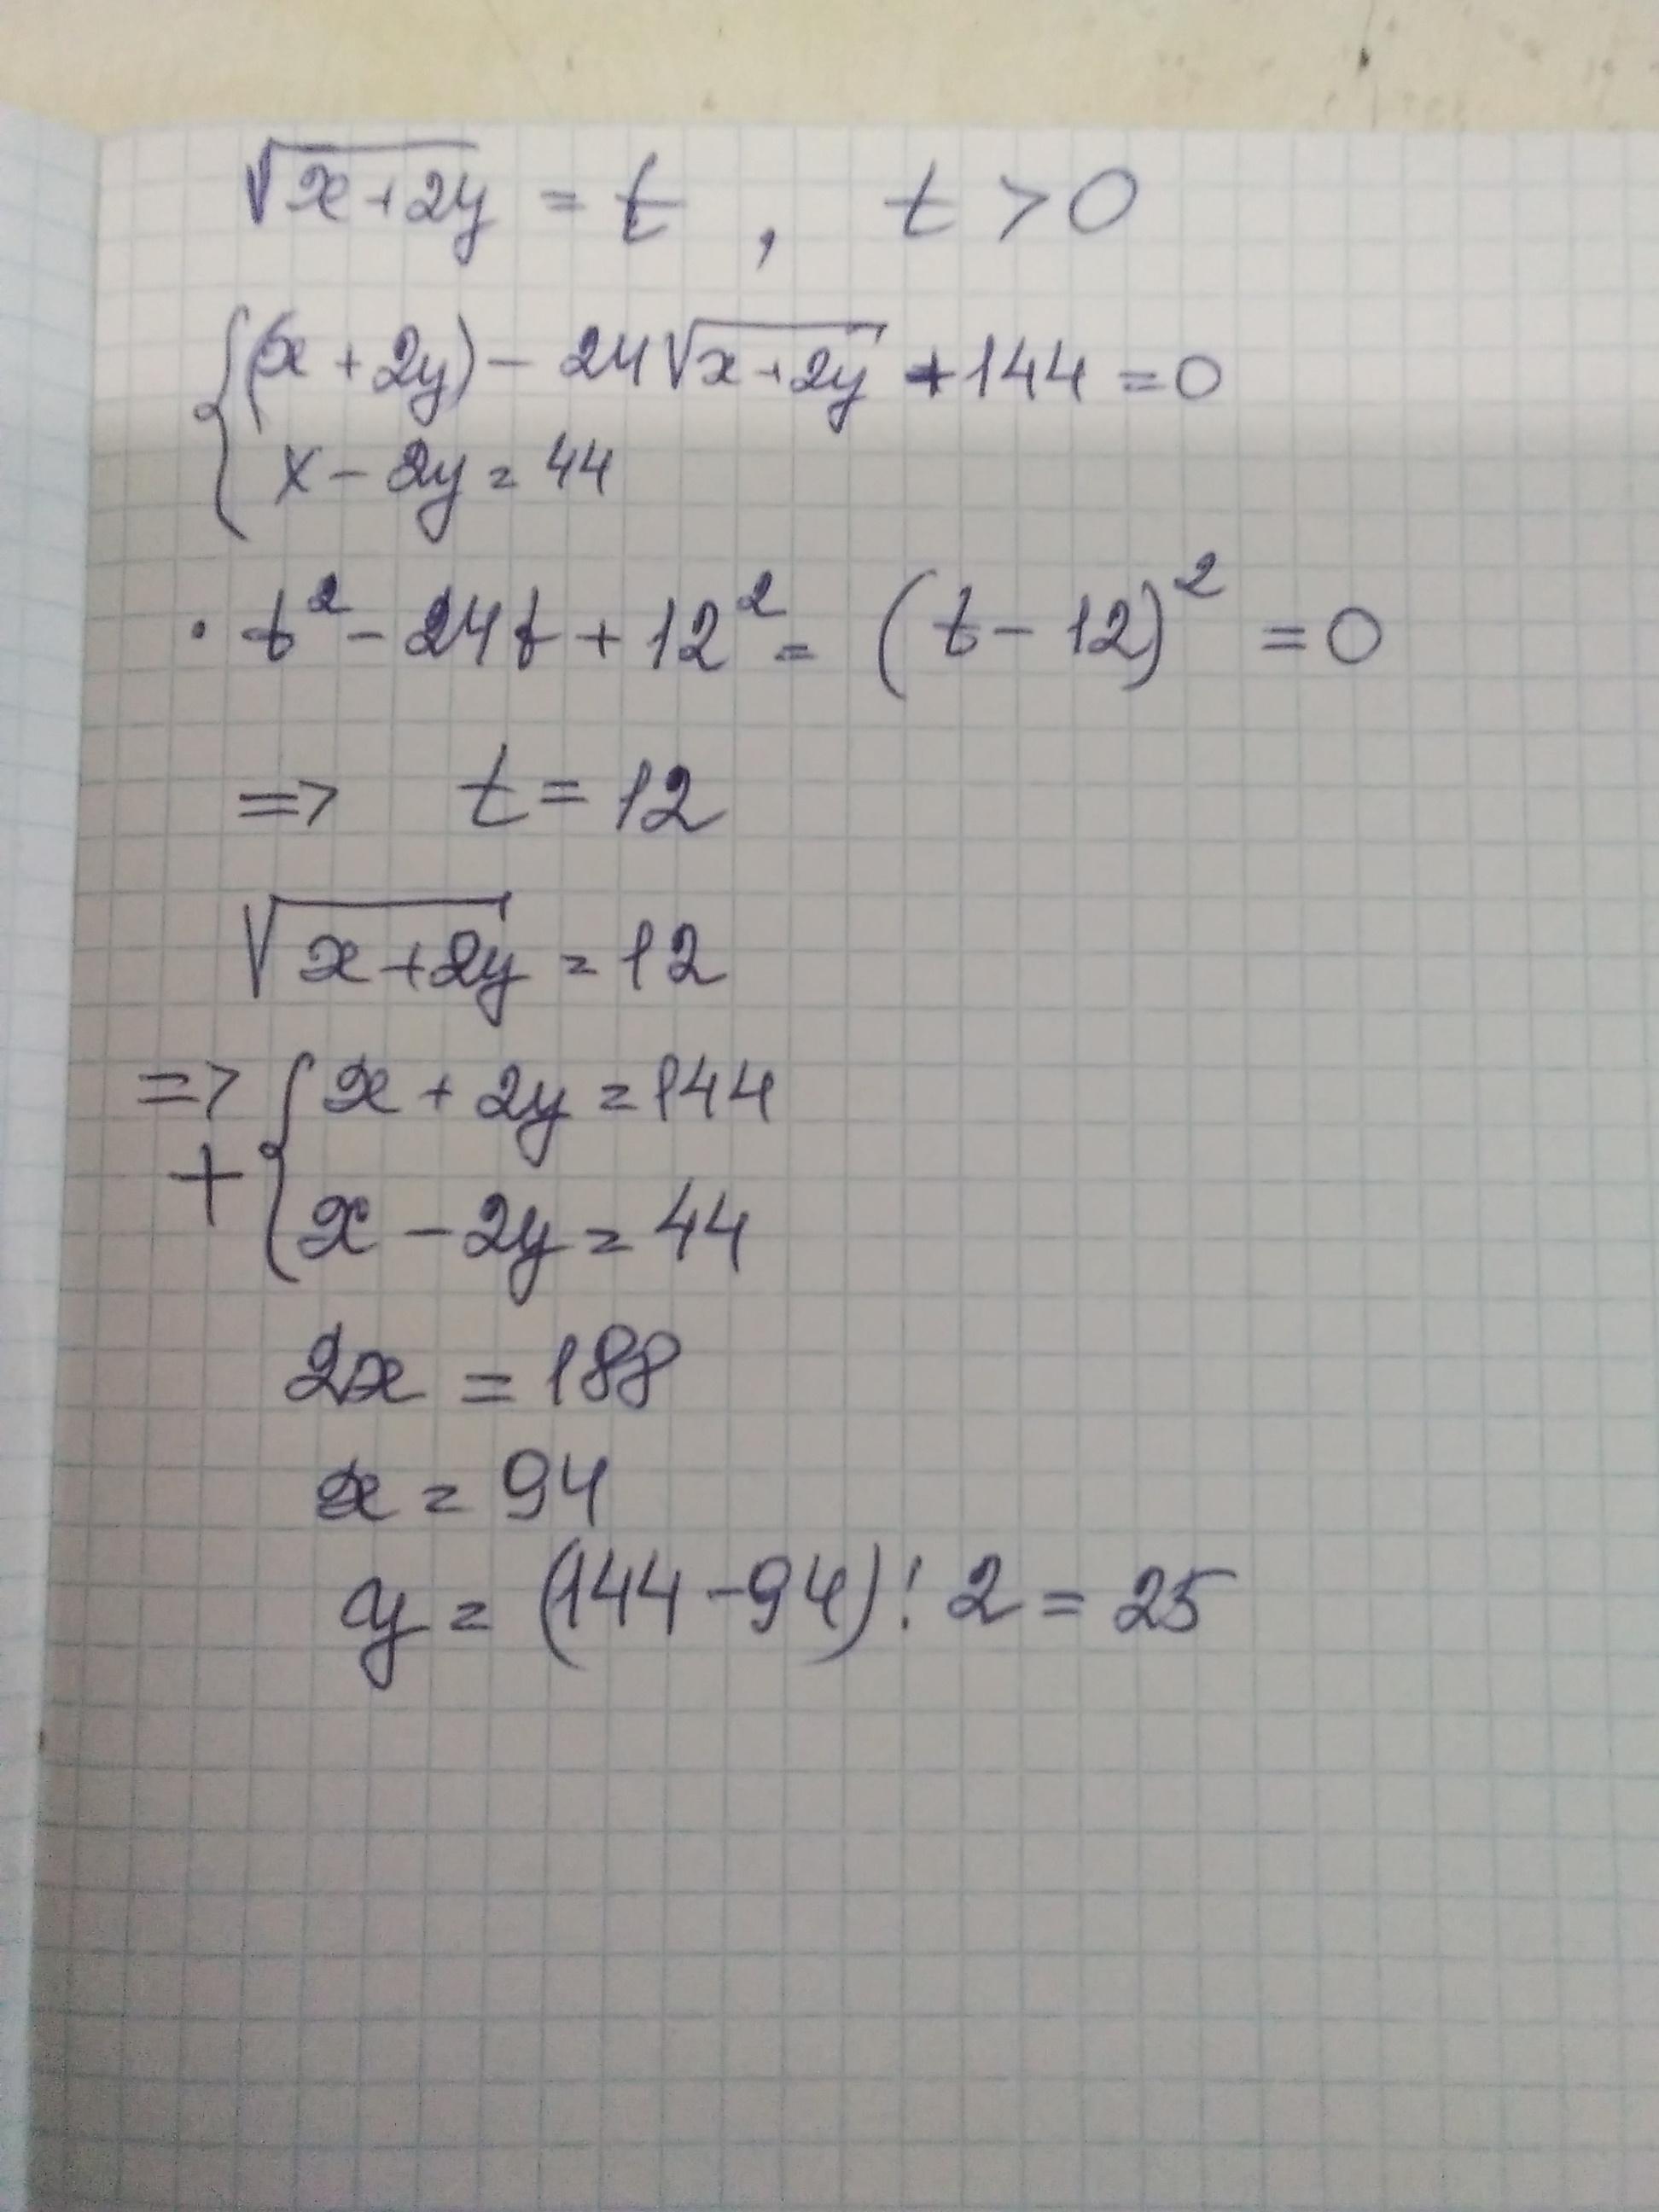 √(x+2y) = t , t > 0
{ (x + 2y) - 24√(x+2y) + 144 = 0
x - 2y = 44
· t² - 24t + 12² = (t - 12)² = 0
=> t = 12
√(x+2y) = 12
=> { x + 2y = 144
+ x - 2y = 44
2x = 188
x = 94
y = (144 - 94) : 2 = 25